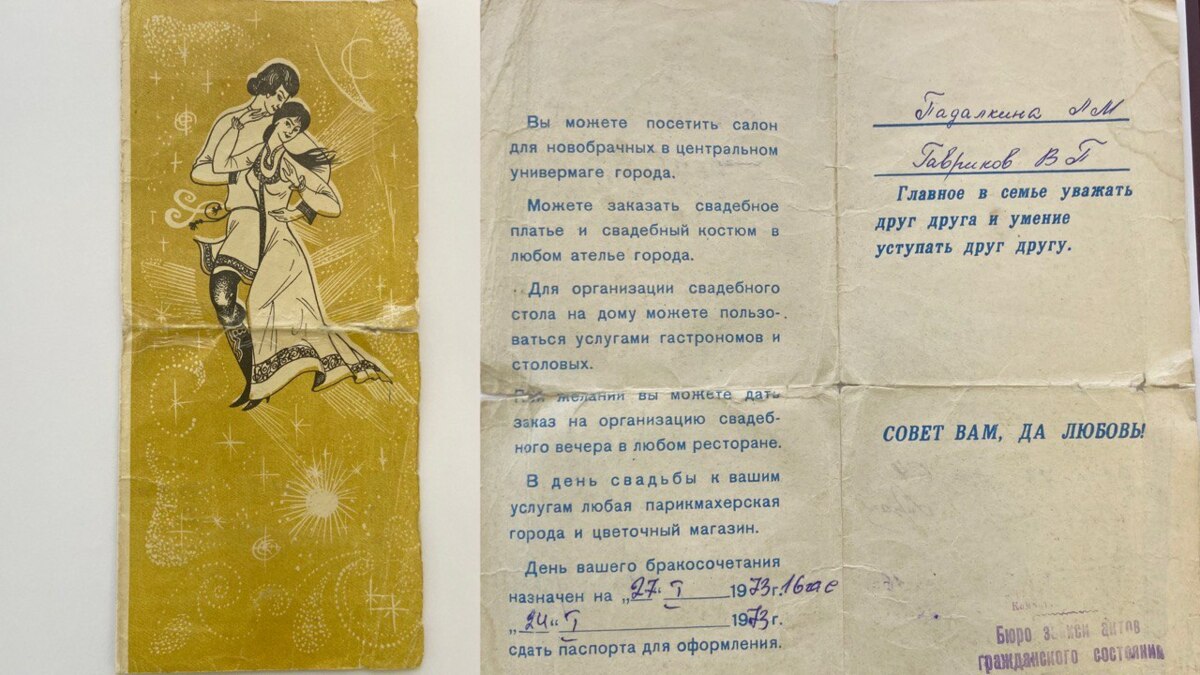 Вы можете посетить салон
для новобрачных в центральном
универмаге города.
Можете заказать свадебное
платье и свадебный костюм в
любом ателье города.
Для организации свадебного
стола на дому можете пользо-
ваться услугами гастрономов и
столовых.
При желании вы можете дать
заказ на организацию свадеб-
ного вечера в любом ресторане.
В день свадьбы к вашим
услугам любая парикмахерская
города и цветочный магазин.
День вашего бракосочетания
назначен на „27“ I 1973г. 16час
„24“ I 1973г.
сдать паспорта для оформления.
Падалкина Л М
Гавриков В П
Главное в семье уважать
друг друга и умение
уступать друг другу.
СОВЕТ ВАМ, ДА ЛЮБОВЬ!
Бюро записи актов
гражданского состояния